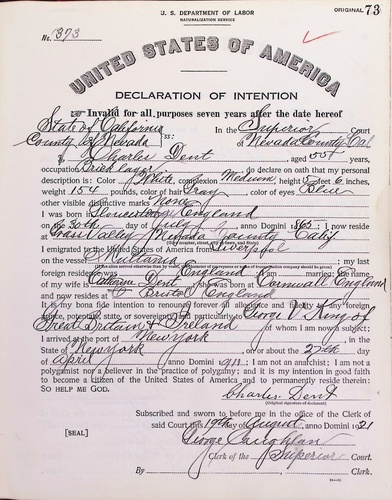 U. S. DEPARTMENT OF LABOR
NATURALIZATION SERVICE
ORIGINAL 73
No. 373
UNITED STATES OF AMERICA
DECLARATION OF INTENTION
Invalid for all purposes seven years after the date hereof
State of California ss: In the Superior Court
County of Nevada of Nevada County Cal
I, Charles Dent, aged 55 years,
occupation Brick layer, do declare on oath that my personal
description is: Color White, complexion Medium, height 5 feet 6 inches,
weight 154 pounds, color of hair Gray, color of eyes Blue
other visible distinctive marks None
I was born in England
on the 30th day of July, anno Domini 1865; I now reside
at Grass Valley Nevada County Calif
I emigrated to the United States of America from Liverpool
on the vessel; my last
foreign residence was England; I am married; the name
of my wife is Catherine Dent; she was born at Cornwall England
and now resides at Bristol England
It is my bona fide intention to renounce forever all allegiance and fidelity to any foreign
prince, potentate, state, or sovereignty, and particularly to George V King of
Great Britain & Ireland, of whom I am now a subject;
I arrived at the port of New York, in the
State of New York, on or about the 27th day
of April, anno Domini 1911; I am not an anarchist; I am not a
polygamist nor a believer in the practice of polygamy; and it is my intention in good faith
to become a citizen of the United States of America and to permanently reside therein:
SO HELP ME GOD.
Charles Dent
(Original signature of declarant)
Subscribed and sworn to before me in the office of the Clerk of
said Court this 19th day of August, anno Domini 1921
[SEAL]
George Caughlan
Clerk of the Superior Court.
By, Clerk.